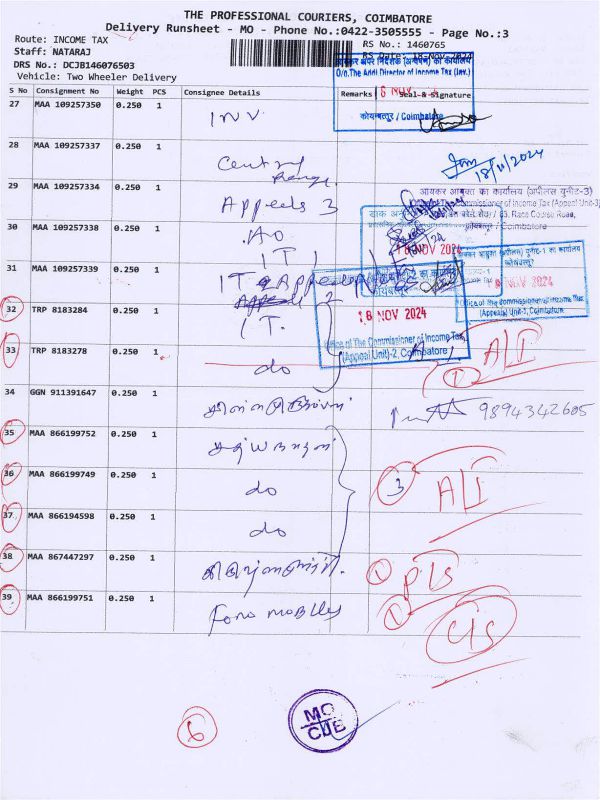 THE PROFESSIONAL COURIERS, COIMBATORE
Delivery Runsheet - MO - Phone No.:0422-3505555 - Page No.:3
Route: INCOME TAX
RS No.: 1460765
Staff: NATARAJ
RS Date: 18-Nov-2024
DRS No.: DCJB146076503
Vehicle: Two Wheeler Delivery
S No Consignment No Weight PCS Consignee Details Remarks Seal & Signature
आयकर अपर निदेशक (अन्वेषण) का कार्यालय
O/o.The Addl Director of Income Tax (Inv.)
कोयम्बत्तूर / Coimbatore
27 MAA 109257350 0.250 1 INV
28 MAA 109257337 0.250 1 Central Range
18/11/2024
29 MAA 109257334 0.250 1 Appeals 3
आयकर आयुक्त का कार्यालय (अपील्स यूनीट-3)
Commissioner of Income Tax (Appeal Unit-3)
63, Race Course Road,
Coimbatore
30 MAA 109257338 0.250 1 AO ITI
18 NOV 2024
31 MAA 109257339 0.250 1 IT Appeal
NOV 2024
Office of the Commissioner of Income Tax
(Appeals) Unit-1, Coimbatore
18 NOV 2024
Office of The Commissioner of Income Tax,
(Appeal Unit)-2, Coimbatore
32 TRP 8183284 0.250 1 I.T.
33 TRP 8183278 0.250 1 do
1 ALI
34 GGN 911391647 0.250 1
9894342605
35 MAA 866199752 0.250 1
36 MAA 866199749 0.250 1 do
3 ALI
37 MAA 866194598 0.250 1 do
38 MAA 867447297 0.250 1
1 PLS
39 MAA 866199751 0.250 1 Fono mobiles
1 CLS
6
MO
CBE